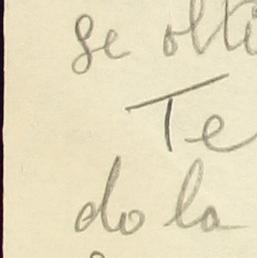 se olti
Te
do la